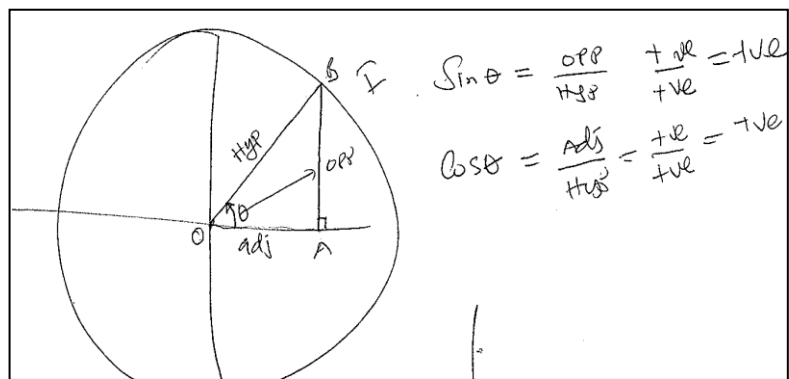 B I
Hyp
opp
θ
O adj A
Sinθ = opp/Hyp +ve/+ve = +ve
Cosθ = Adj/Hyp = +ve/+ve = +ve